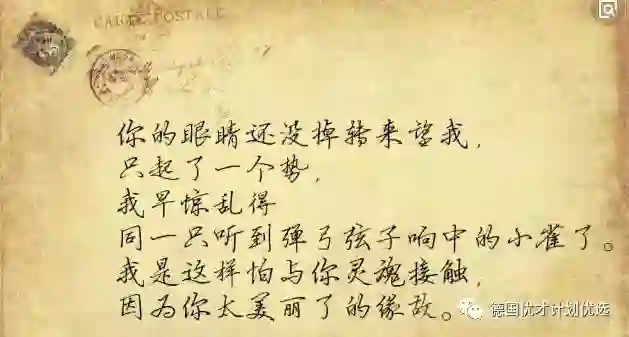 CARTE POSTALE
你的眼睛还没掉转来望我,
只起了一个势,
我早惊乱得
同一只听到弹弓弦子响中的小雀了。
我是这样怕与你灵魂接触,
因为你太美丽了的缘故。
德国优才计划优选